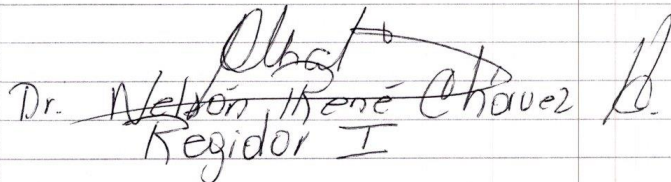 Dr. Nelsón René Chávez H.
Regidor I